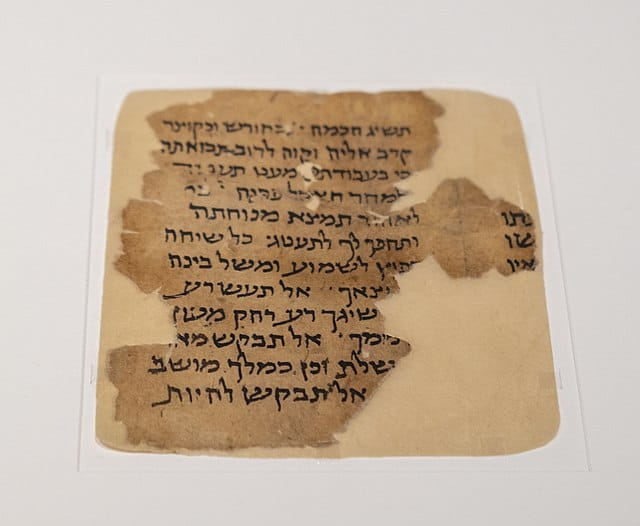 תשיג חכמה · כחורש וכקוצר
קרב אליה וקוה לרוב תבואתה
כי בעבודתה מעט תעבוד
למחר תאכל פריה
לאחור תמצא מנוחתה
ותהפך לך לתענוג · כל שיחה
חפוץ לשמוע ומשל בינה
יצאך · אל תעש רע
ישיגך רע רחק מעון
ממך · אל תבקש מא
משלת וכן כמלך מושב
אל תבקש להיות
תו
שו
איו